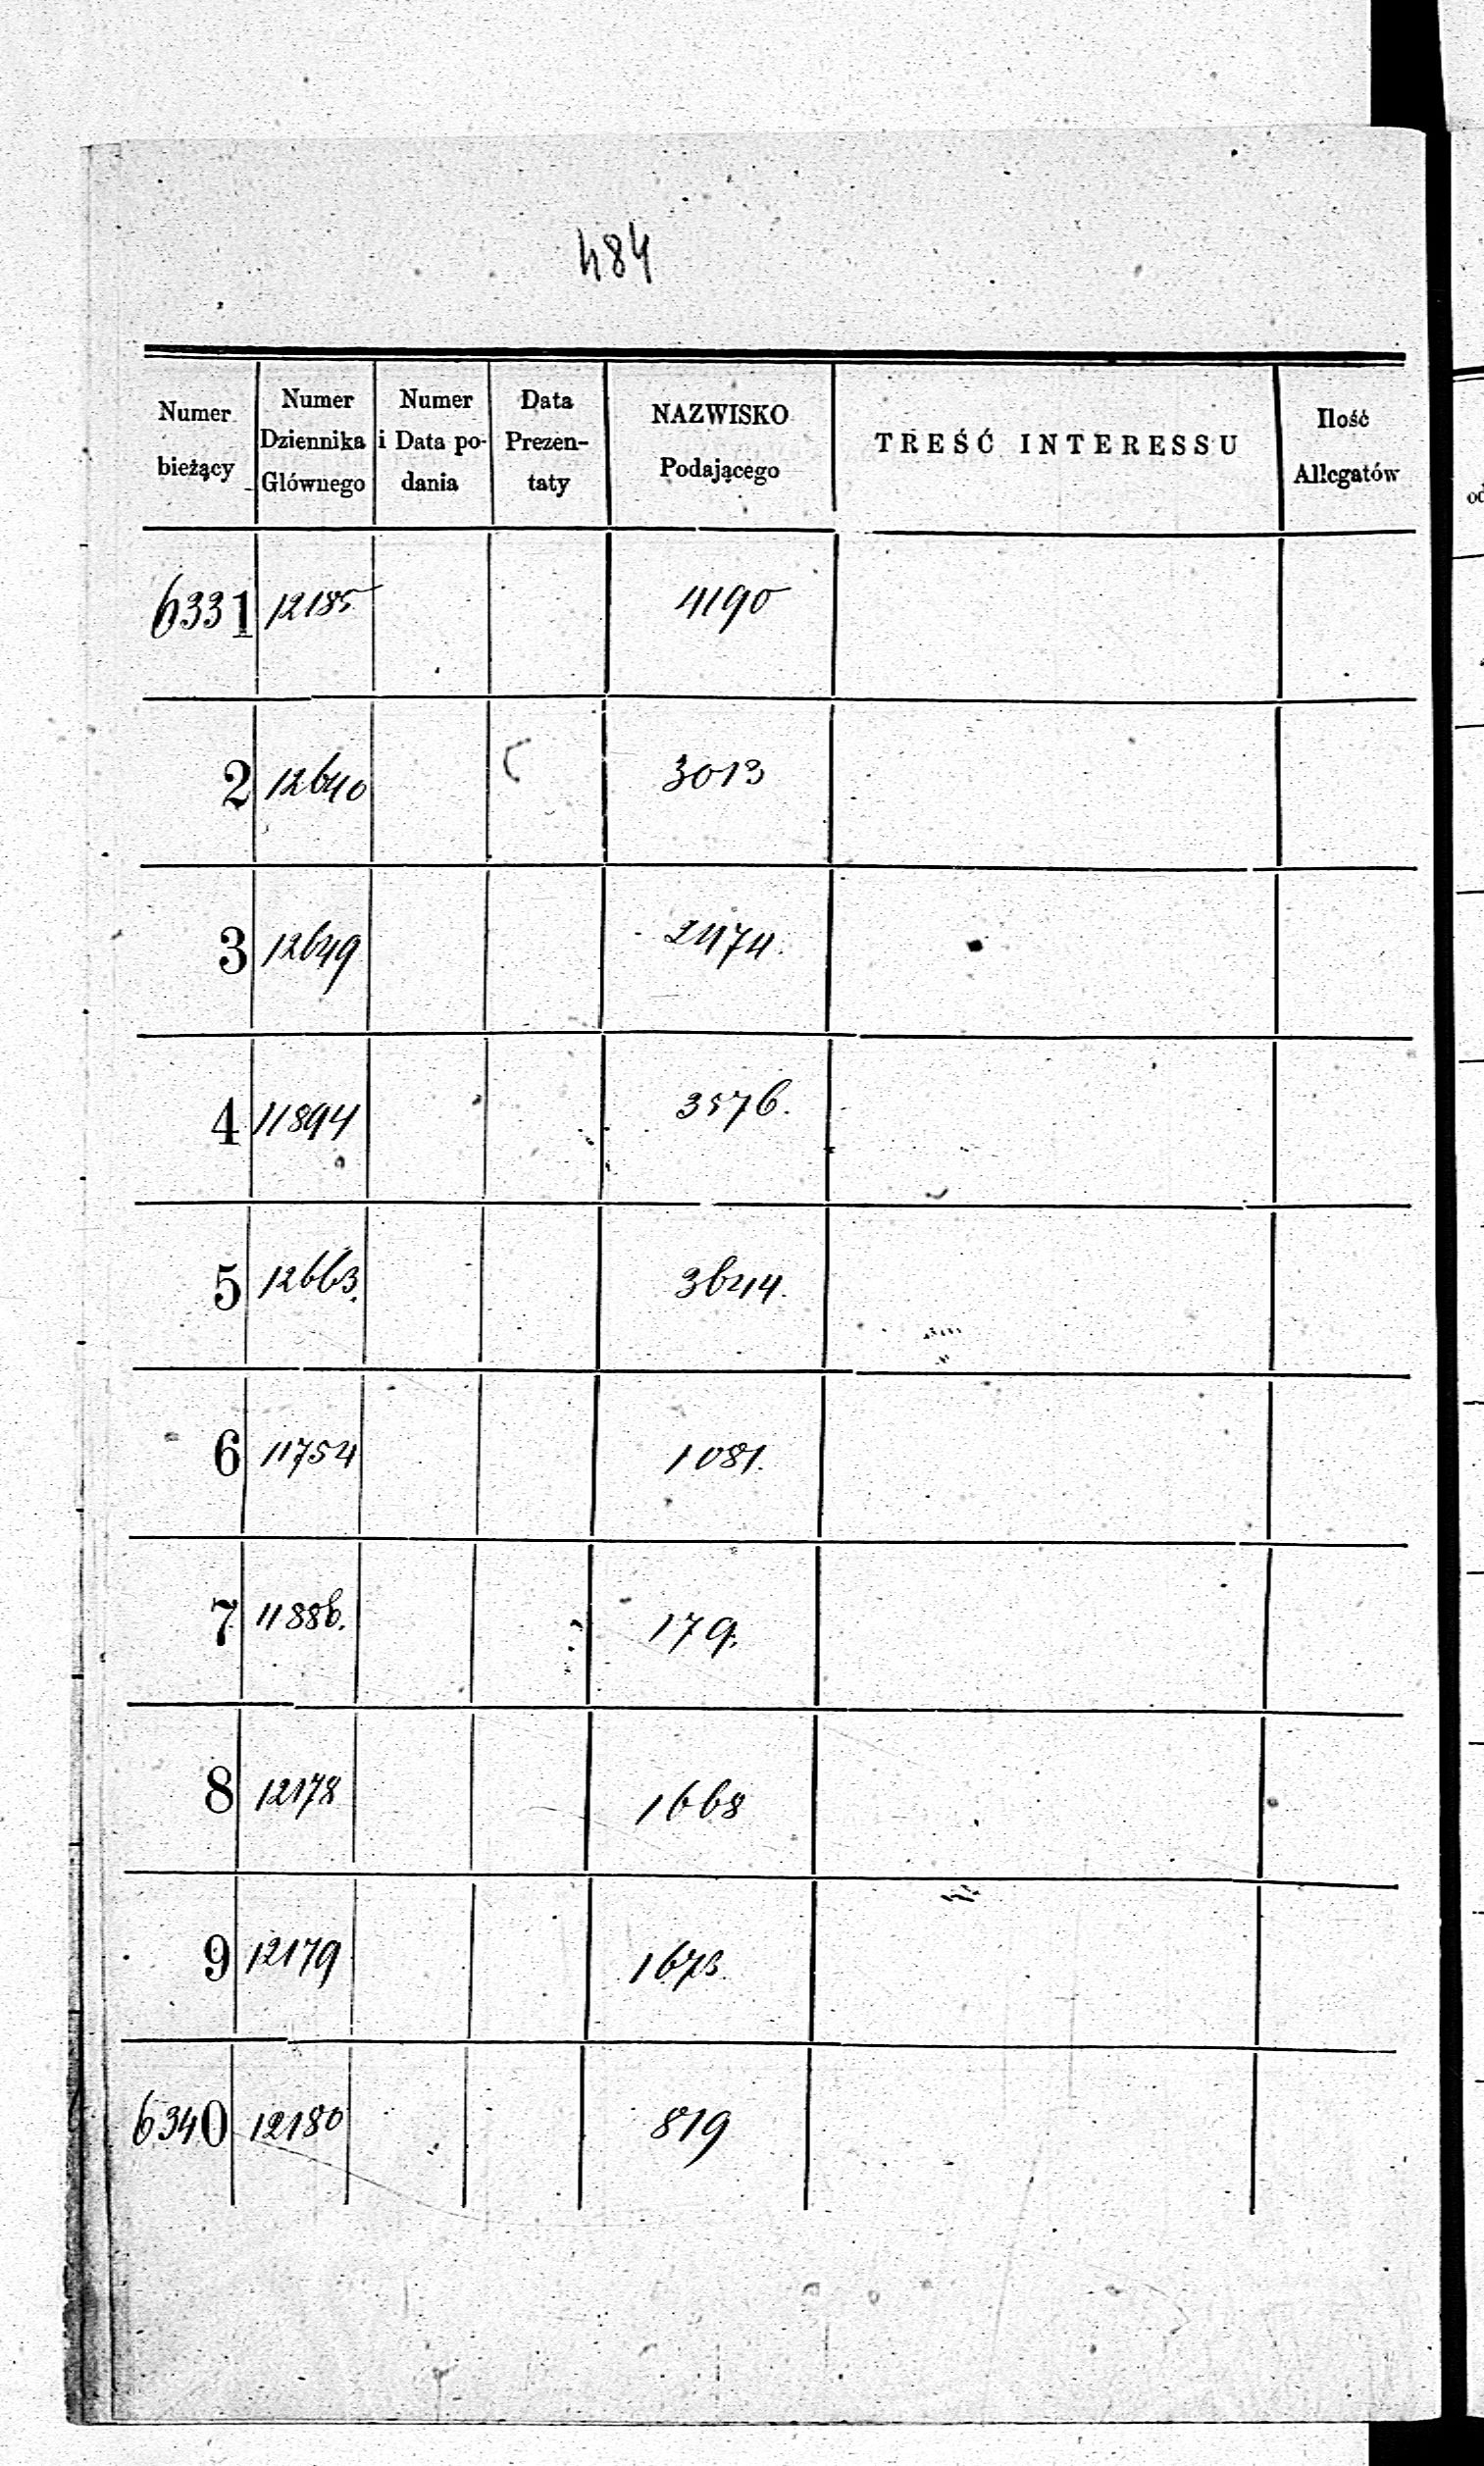 484
Numer bieżący | Numer Dziennika Głównego | Numer i Data podania | Data Prezentaty | NAZWISKO Podającego | TREŚĆ INTERESSU | Ilość Allegatów
6331 12185 4190
2 12640 3013
3 12649 2474.
4 11894 3576.
5 12663. 3644.
6 11754 1081.
7 11886. 179.
8 12178 1668
9 12179 1673.
6340 12180 819